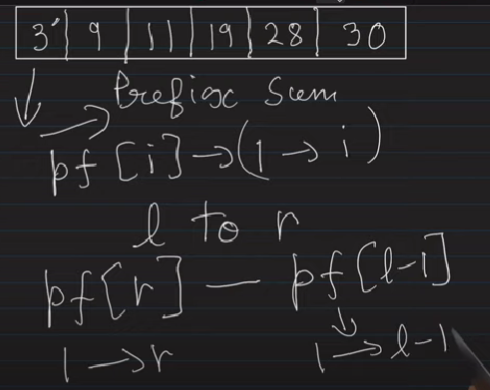 3 9 11 19 28 30
Prefix Sum
pf [i] → (1 → i)
l to r
pf[r] — pf[l-1]
1 → r 1 → l-1